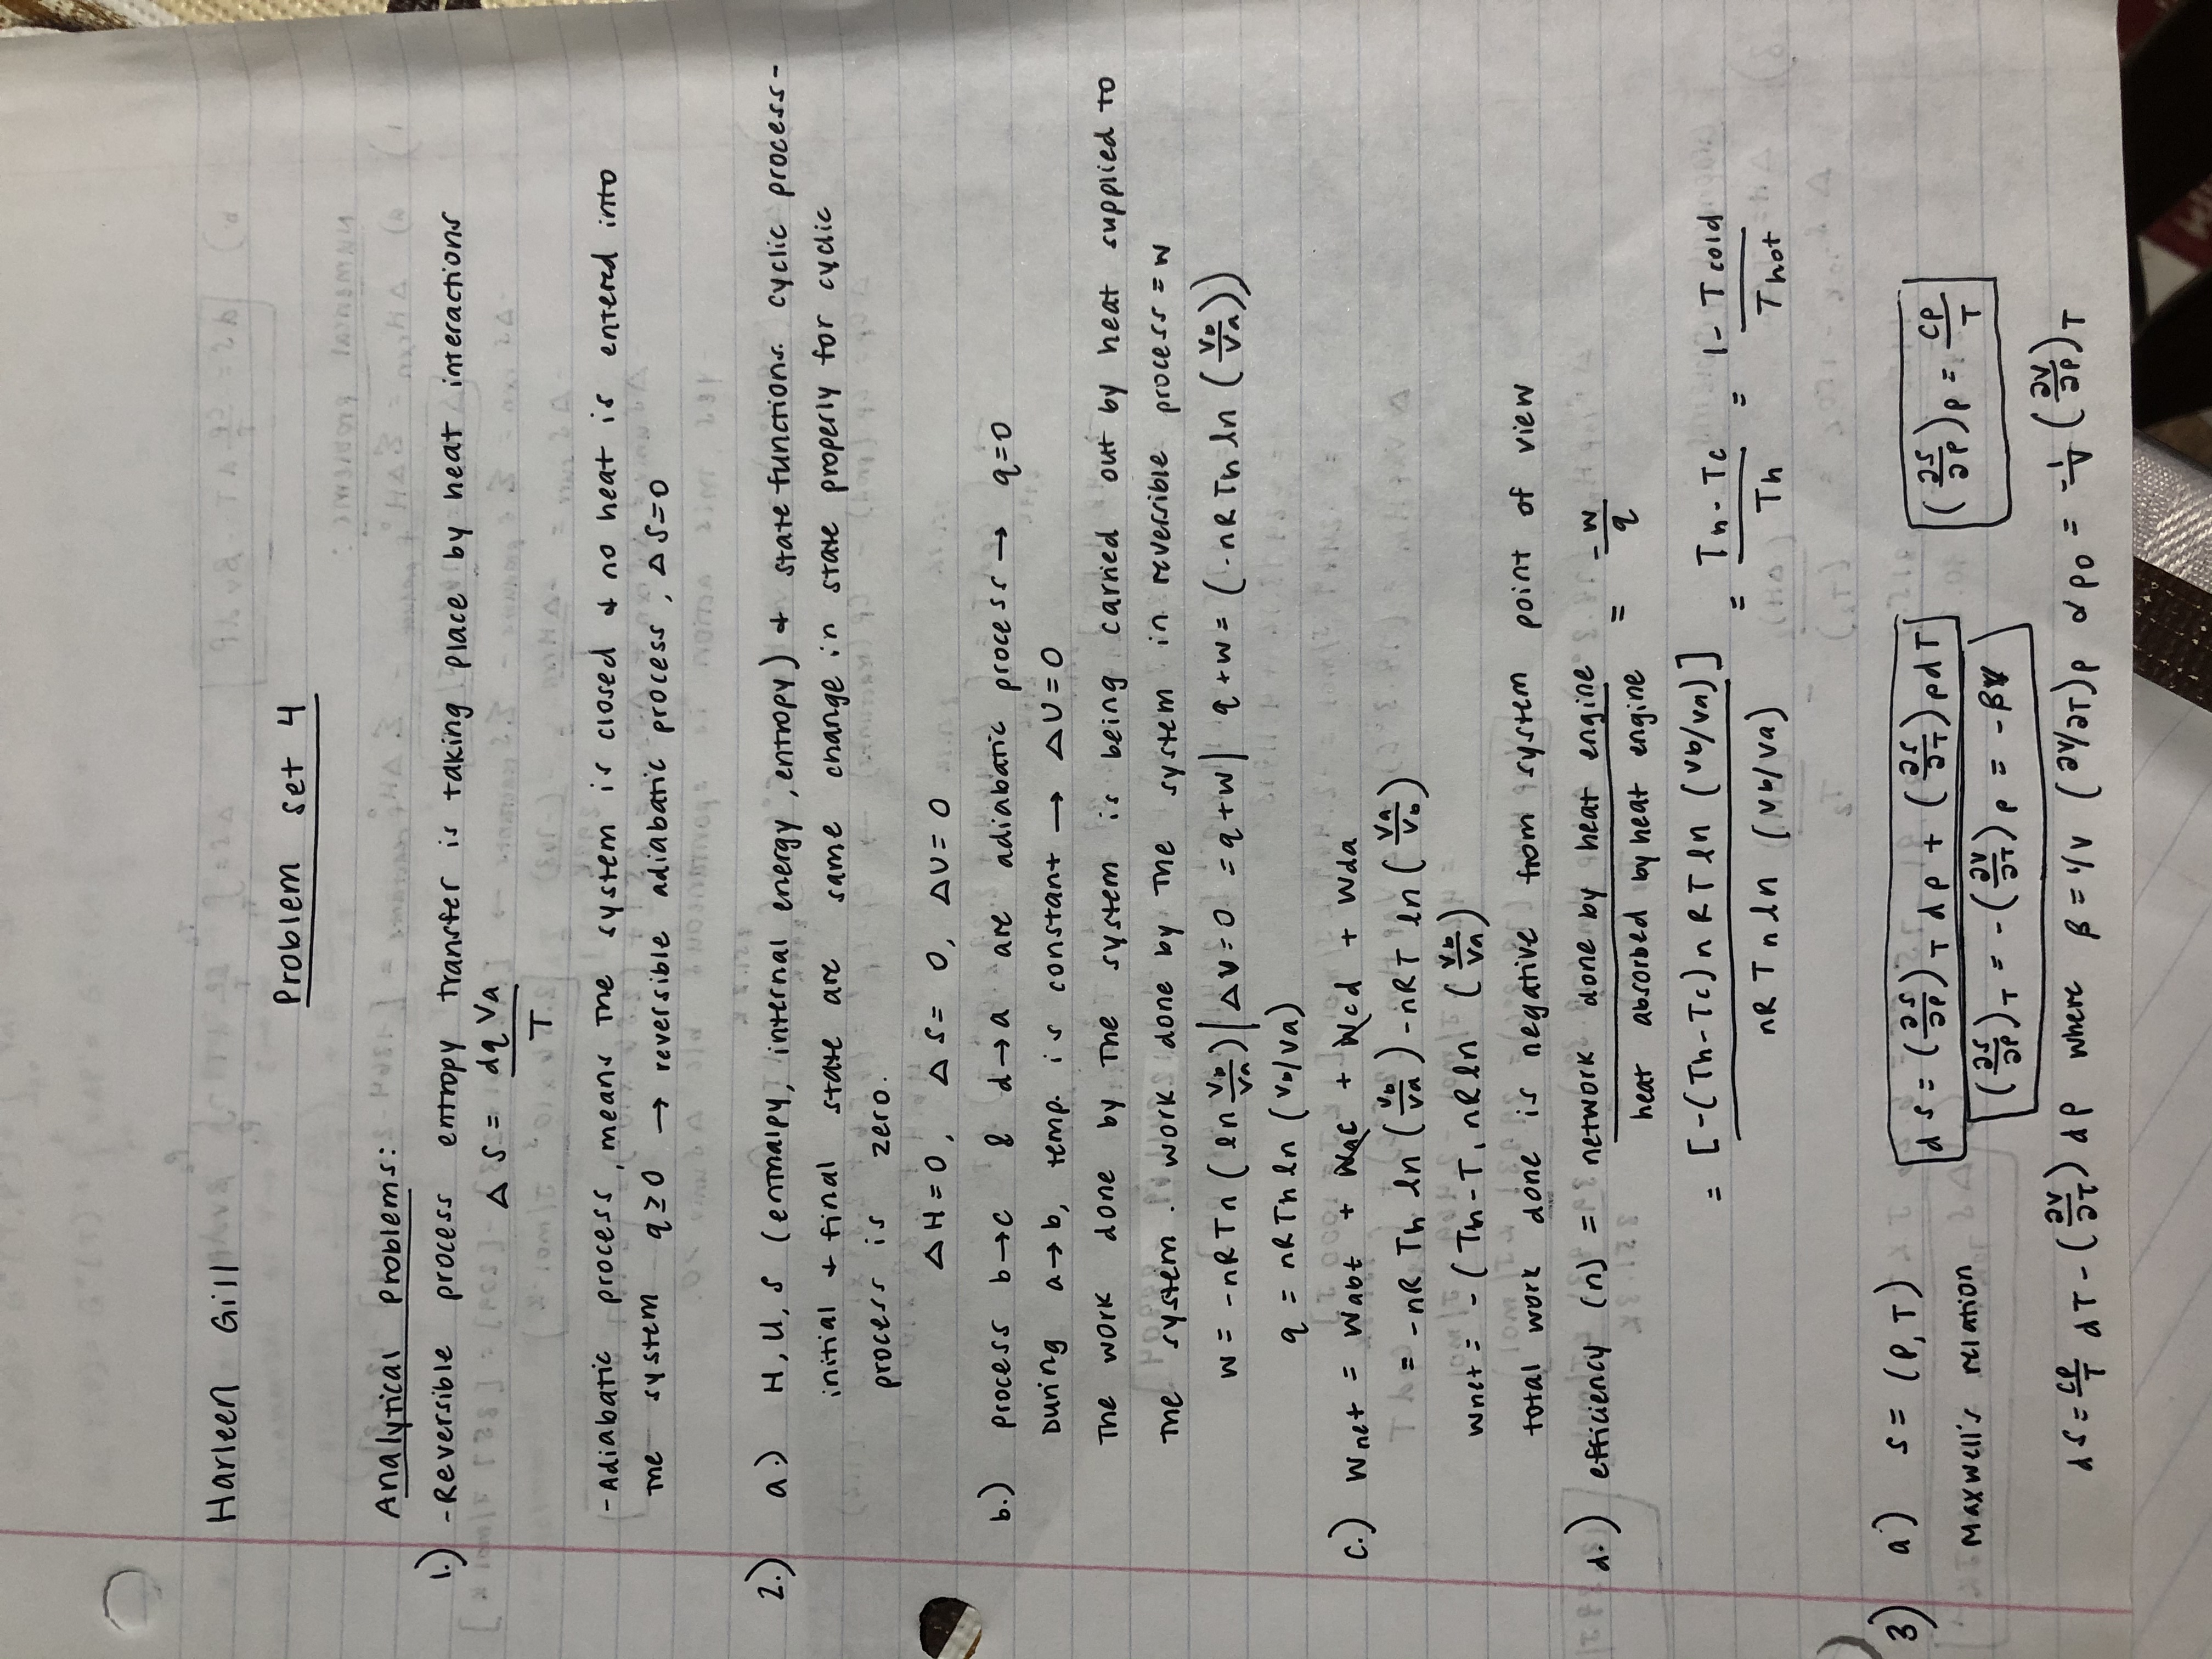 Harleen Gill
Problem set 4
Analytical problems:
1.) -Reversible process entropy transfer is taking place by heat interactions
Δ S = dq Va / T
-Adiabatic process, means the system is closed & no heat is entered into
the system q ≥ 0 → reversible adiabatic process, ΔS=0
2.) a.) H, U, S (enthalpy, internal energy, entropy) & state functions. cyclic process-
initial & final state are same change in state properly for cyclic
process is zero.
ΔH=0, ΔS= 0, ΔU= 0
b.) process b→c & d→a are adiabatic process → q=0
During a→b, temp. is constant → ΔU=0
The work done by the system is being carried out by heat supplied to
the system. work done by the system in reversible process = w
w = -nRTn (ln Vb/Va) | ΔV=0 = q+w | q+w = (-nRTh ln (Vb/Va))
q = nRTh ln (Vb/Va)
c.) Wnet = Wabt + Wac + Wcd + Wda
= -nR Th ln (Vb/Va) -nRT ln (Va/Vb)
Wnet = -(Th-T, nR ln (Vb/Va)
total work done is negative from system point of view
d.) efficiency (n) = network done by heat engine / heat absorbed by heat engine = -w/q
= [-(Th-Tc)nRT ln (Vb/Va)] / nRTn ln (Vb/Va) = Th-Tc / Th = 1- Tcold / Thot
3) a) S= (P,T) dS = (∂S/∂P)T dp + (∂S/∂T)p dT (∂S/∂P)p = Cp/T
Maxwell's relation (∂S/∂P)T = -(∂V/∂T)p = -βV
dS = Cp/T dT - (∂V/∂T) dp where β = 1/V (∂V/∂T)p αpo = -1/V (∂V/∂P)T